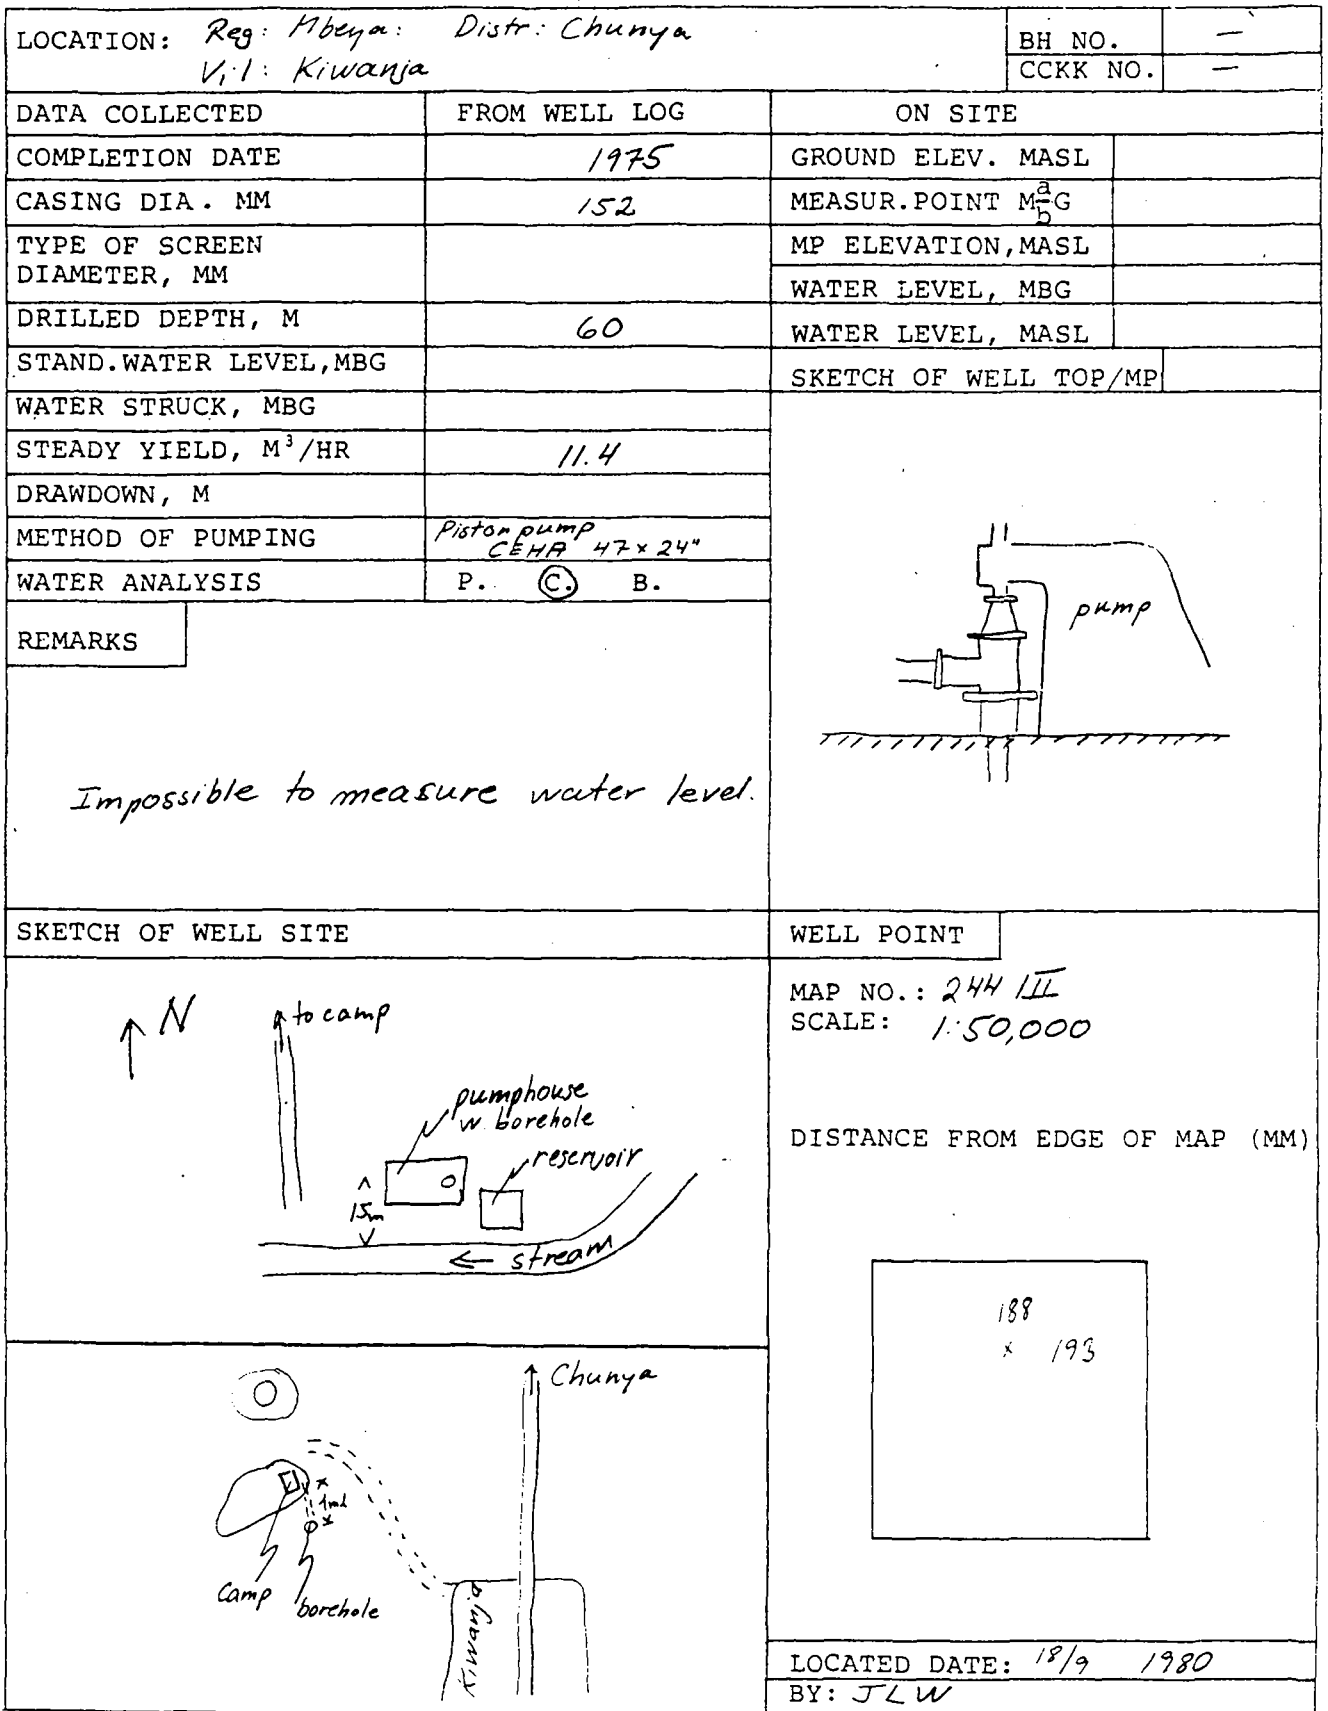 LOCATION: Reg: Mbeya: Distr: Chunya
Vil: Kiwanja
BH NO. —
CCKK NO. —
DATA COLLECTED FROM WELL LOG ON SITE
COMPLETION DATE 1975
CASING DIA. MM 152
TYPE OF SCREEN
DIAMETER, MM
DRILLED DEPTH, M 60
STAND.WATER LEVEL,MBG
WATER STRUCK, MBG
STEADY YIELD, M³/HR 11.4
DRAWDOWN, M
METHOD OF PUMPING Piston pump
CEHA 47 x 24"
WATER ANALYSIS P. C. B.
GROUND ELEV. MASL
MEASUR.POINT M a/b G
MP ELEVATION,MASL
WATER LEVEL, MBG
WATER LEVEL, MASL
SKETCH OF WELL TOP/MP
pump
REMARKS
Impossible to measure water level.
SKETCH OF WELL SITE
N
to camp
pumphouse
w. borehole
reservoir
15m
← stream
WELL POINT
MAP NO.: 244 III
SCALE: 1:50,000
DISTANCE FROM EDGE OF MAP (MM)
188
x 193
Chunya
Camp
borehole
Kiwanja
LOCATED DATE: 18/9 1980
BY: JLW